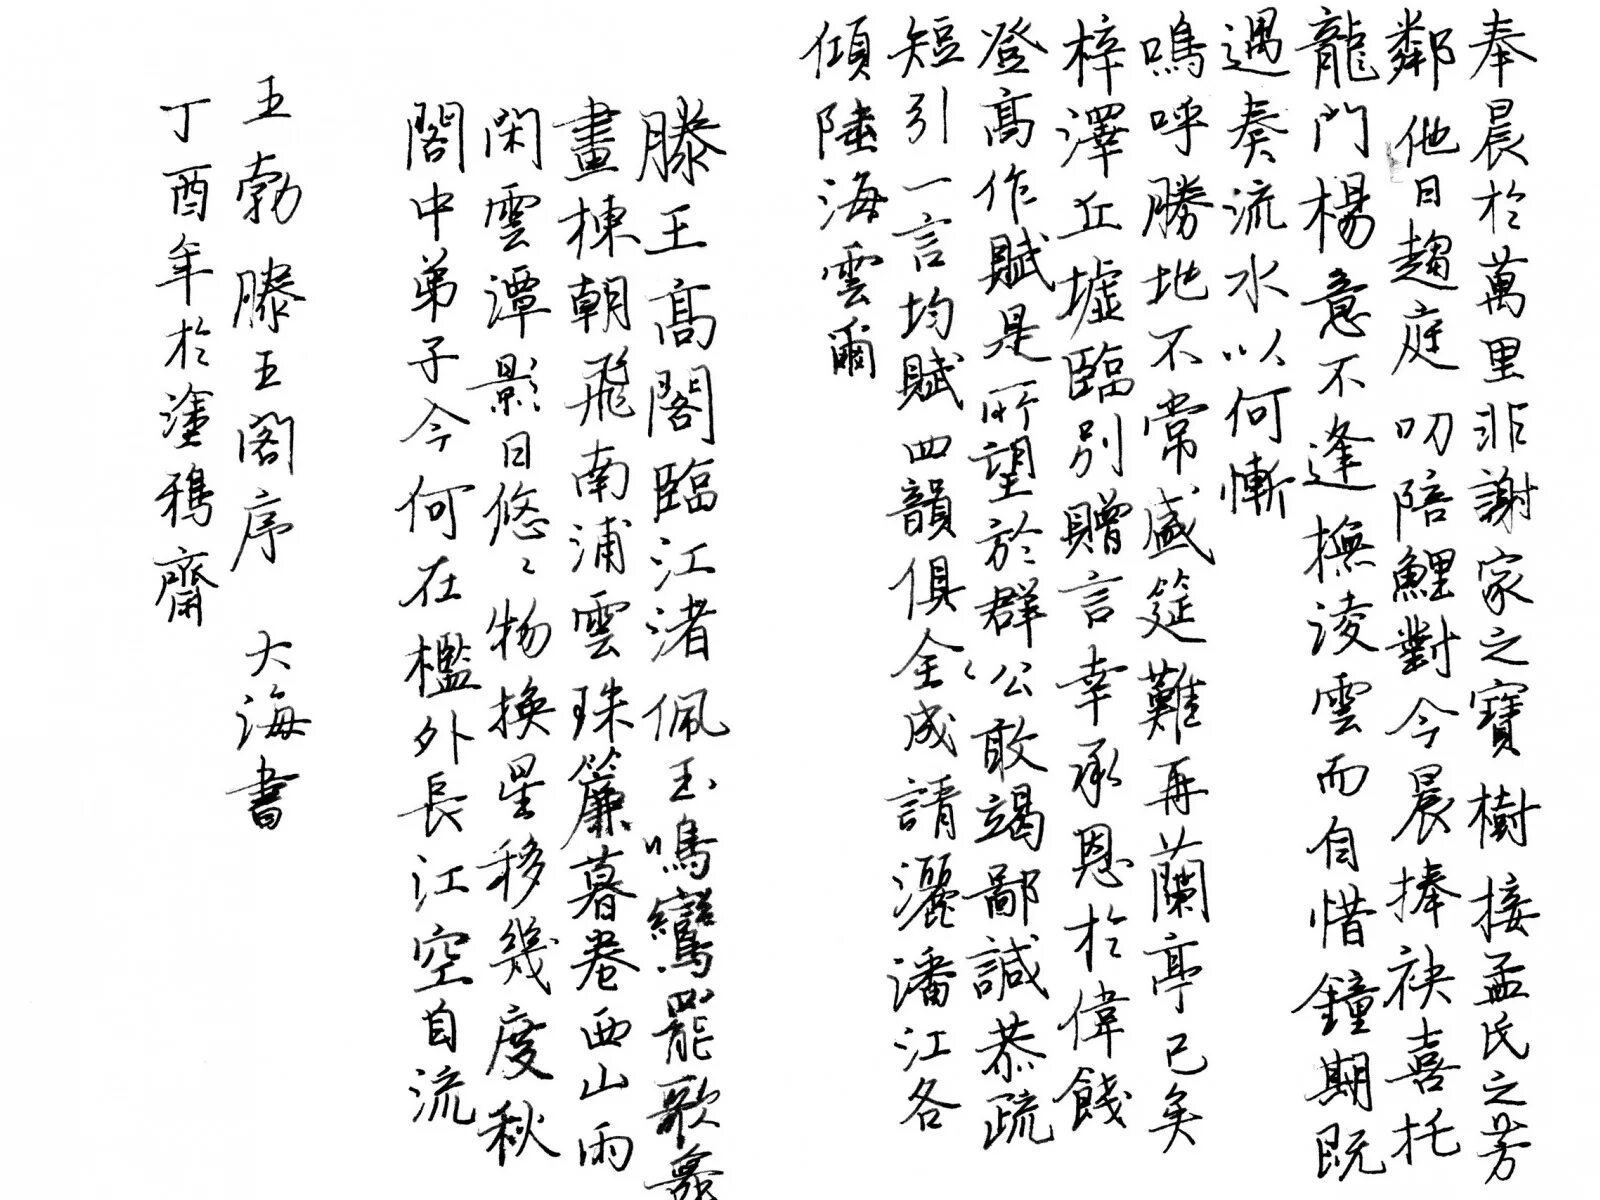 奉晨於萬里非謝家之寶樹接孟氏之芳
鄰他日趨庭叨陪鯉對今晨捧袂喜托
龍門楊意不逢撫淩雲而自惜鐘期既
遇奏流水以何慚
嗚呼勝地不常盛筵難再蘭亭已矣
梓澤丘墟臨別贈言幸承恩於偉餞
登高作賦是所望於群公敢竭鄙誠恭疏
短引一言均賦四韻俱全〻成請灑潘江各
傾陸海雲爾
滕王高閣臨江渚佩玉鳴鸞罷歌舞
畫棟朝飛南浦雲珠簾暮卷西山雨
閑雲潭影日悠〻物換星移幾度秋
閣中弟子今何在檻外長江空自流
王勃滕王阁序 大海書
丁酉年於塗鴉齋